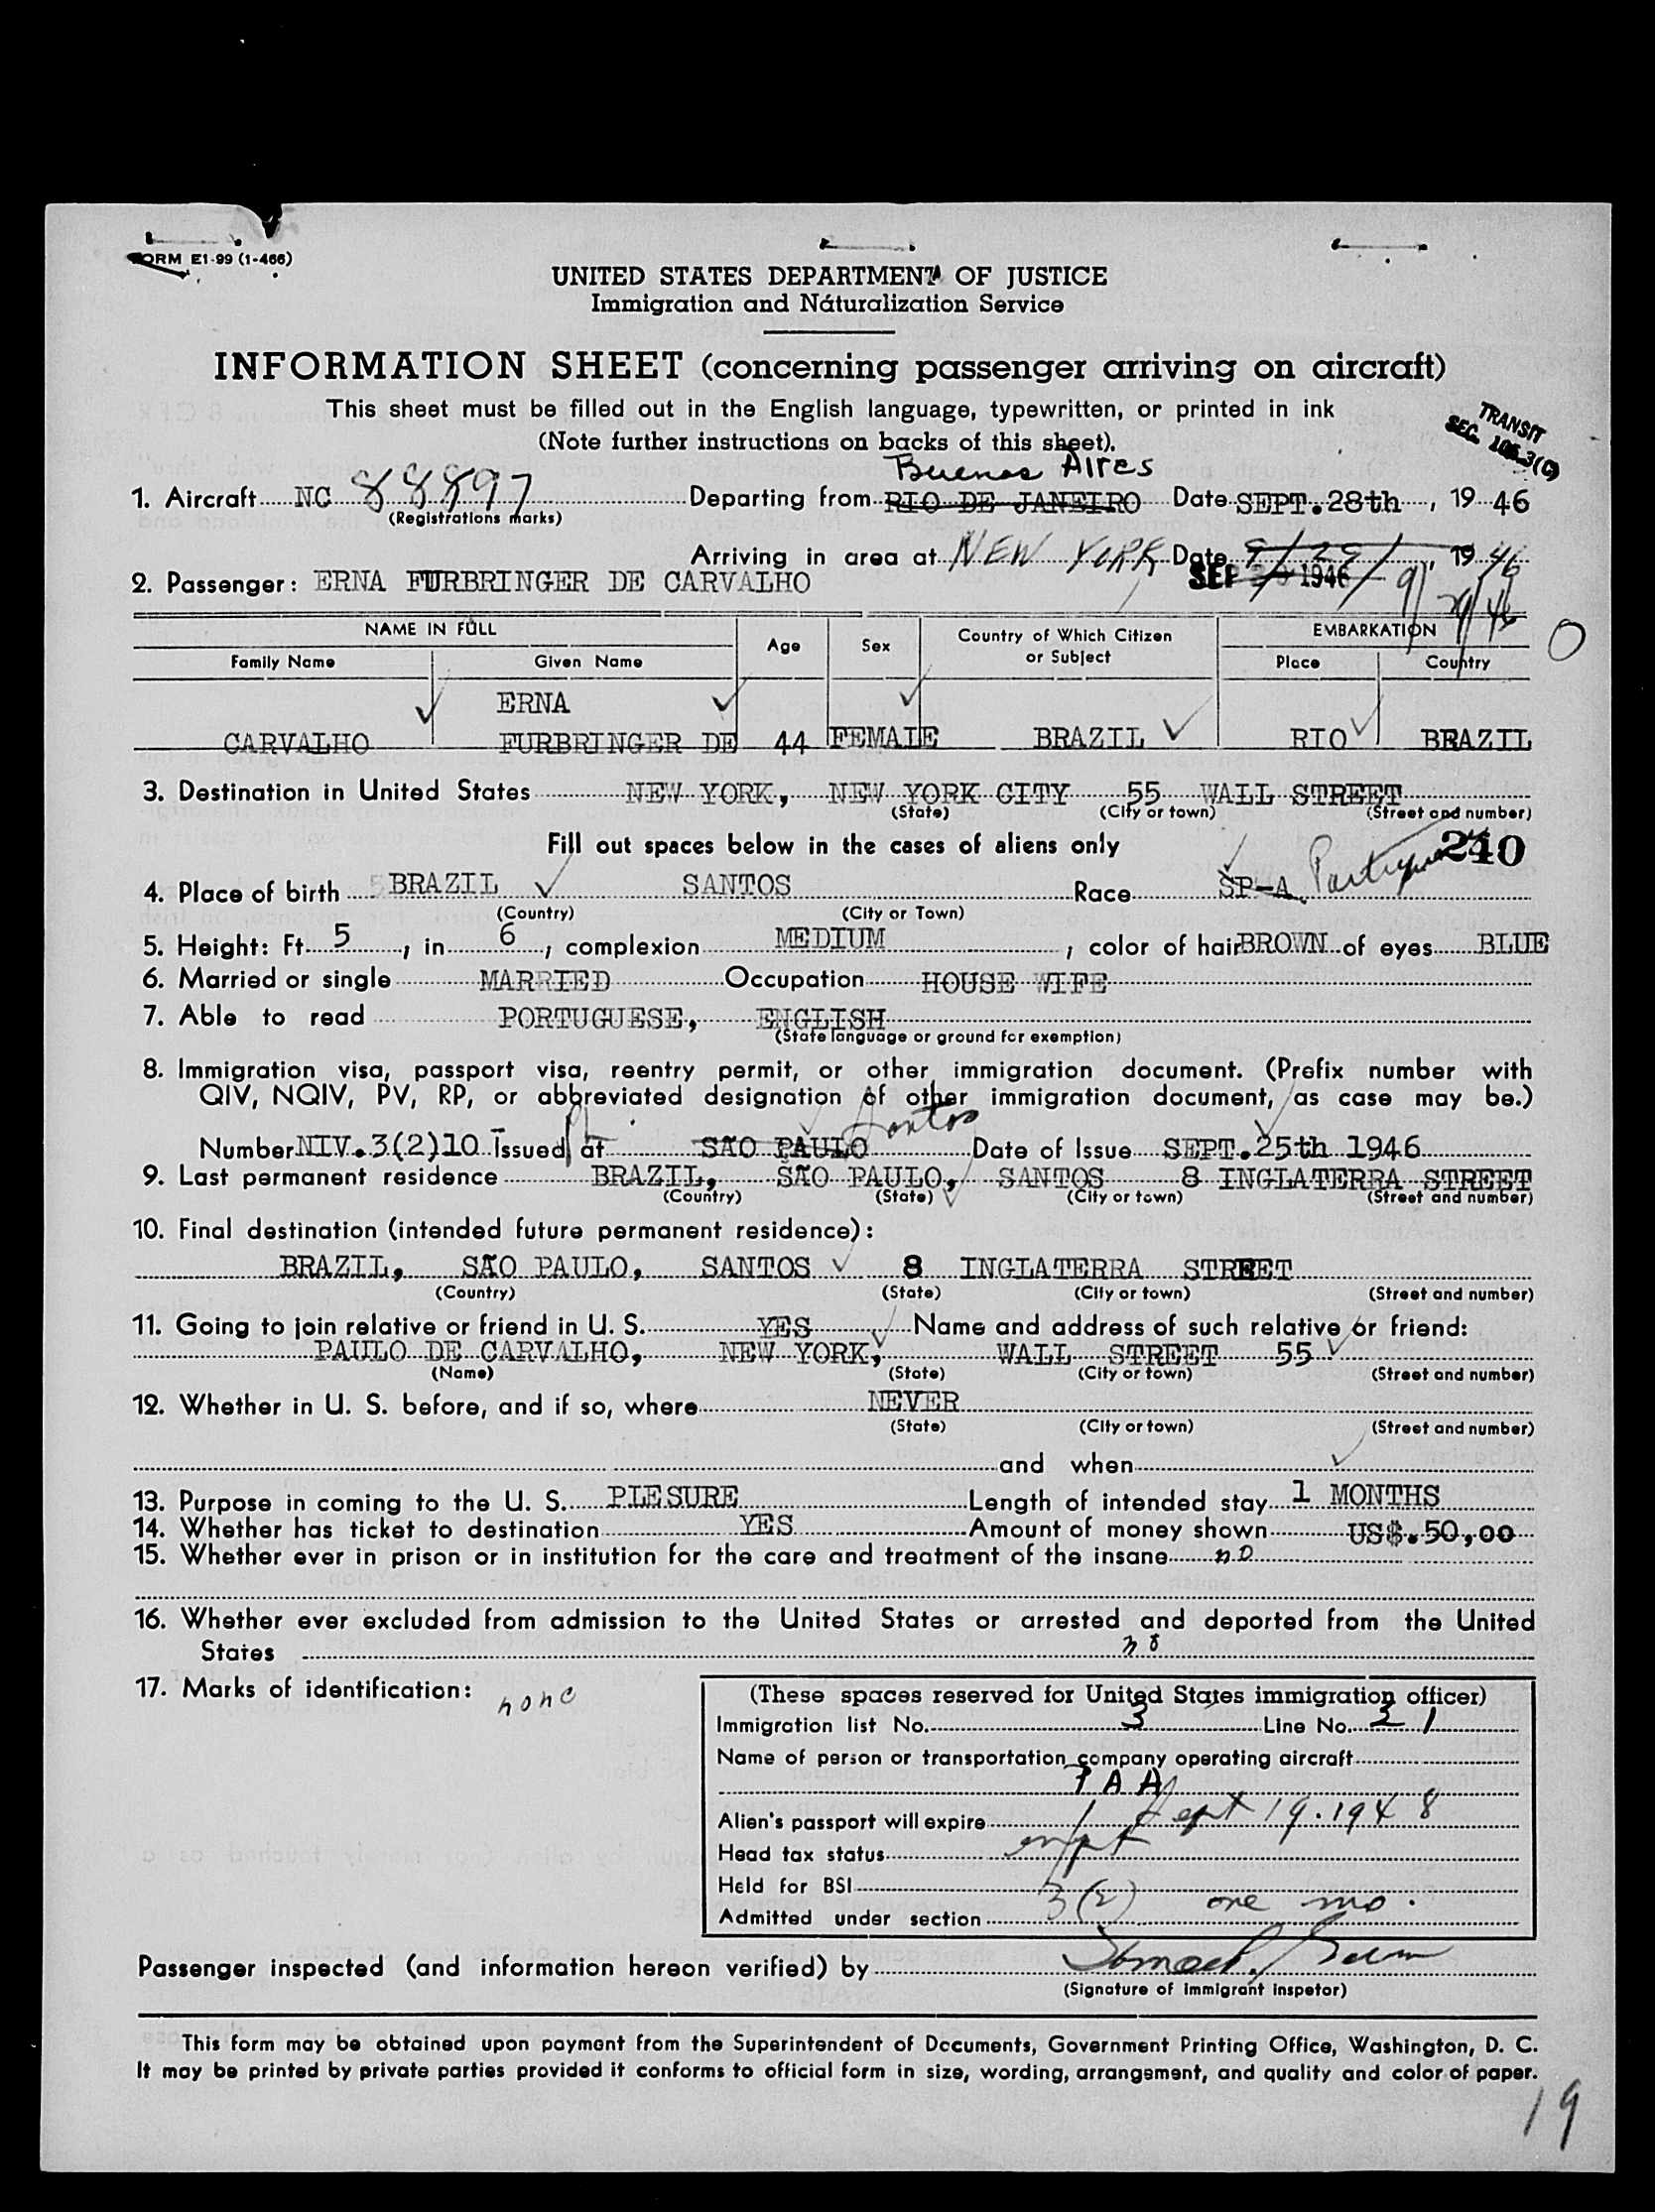 FORM E1-99 (1-466)
UNITED STATES DEPARTMENT OF JUSTICE
Immigration and Naturalization Service
INFORMATION SHEET (concerning passenger arriving on aircraft)
This sheet must be filled out in the English language, typewritten, or printed in ink
(Note further instructions on backs of this sheet).
TRANSIT
SEC. 105.3(C)
Buenos Aires
1. Aircraft NC 88897 Departing from RIO DE JANEIRO Date SEPT. 28th, 19 46
(Registrations marks)
Arriving in area at NEW YORK Date 9/29/, 19 46
SEP 1946 9/29/46
2. Passenger: ERNA FURBRINGER DE CARVALHO
NAME IN FULL Age Sex Country of Which Citizen or Subject EMBARKATION
Family Name Given Name Place Country
O
ERNA
CARVALHO FURBRINGER DE 44 FEMALE BRAZIL RIO BRAZIL
3. Destination in United States NEW YORK, NEW YORK CITY 55 WALL STREET
(State) (City or town) (Street and number)
Fill out spaces below in the cases of aliens only
240
4. Place of birth BRAZIL SANTOS Race SP-A Portuguese
(Country) (City or Town)
5. Height: Ft. 5, in 6, complexion MEDIUM, color of hair BROWN of eyes BLUE
6. Married or single MARRIED Occupation HOUSE WIFE
7. Able to read PORTUGUESE, ENGLISH
(State language or ground for exemption)
8. Immigration visa, passport visa, reentry permit, or other immigration document. (Prefix number with
QIV, NQIV, PV, RP, or abbreviated designation of other immigration document, as case may be.)
Santos
Number NIV. 3(2)10 Issued at SAO PAULO Date of Issue SEPT. 25th 1946
9. Last permanent residence BRAZIL, SÃO PAULO, SANTOS 8 INGLATERRA STREET
(Country) (State) (City or town) (Street and number)
10. Final destination (intended future permanent residence):
BRAZIL, SÃO PAULO, SANTOS 8 INGLATERRA STREET
(Country) (State) (City or town) (Street and number)
11. Going to join relative or friend in U. S. YES Name and address of such relative or friend:
PAULO DE CARVALHO, NEW YORK, WALL STREET 55
(Name) (State) (City or town) (Street and number)
12. Whether in U. S. before, and if so, where NEVER
(State) (City or town) (Street and number)
and when
13. Purpose in coming to the U. S. PLESURE Length of intended stay 1 MONTHS
14. Whether has ticket to destination YES Amount of money shown US$.50,00
15. Whether ever in prison or in institution for the care and treatment of the insane no
16. Whether ever excluded from admission to the United States or arrested and deported from the United
States no
17. Marks of identification: none
(These spaces reserved for United States immigration officer)
Immigration list No. 3 Line No. 21
Name of person or transportation company operating aircraft
PAA
Alien's passport will expire Sept 19. 1948
Head tax status
Held for BSI
Admitted under section 3(2) one mo.
Passenger inspected (and information hereon verified) by
(Signature of Immigrant Inspetor)
This form may be obtained upon payment from the Superintendent of Documents, Government Printing Office, Washington, D. C.
It may be printed by private parties provided it conforms to official form in size, wording, arrangement, and quality and color of paper.
19